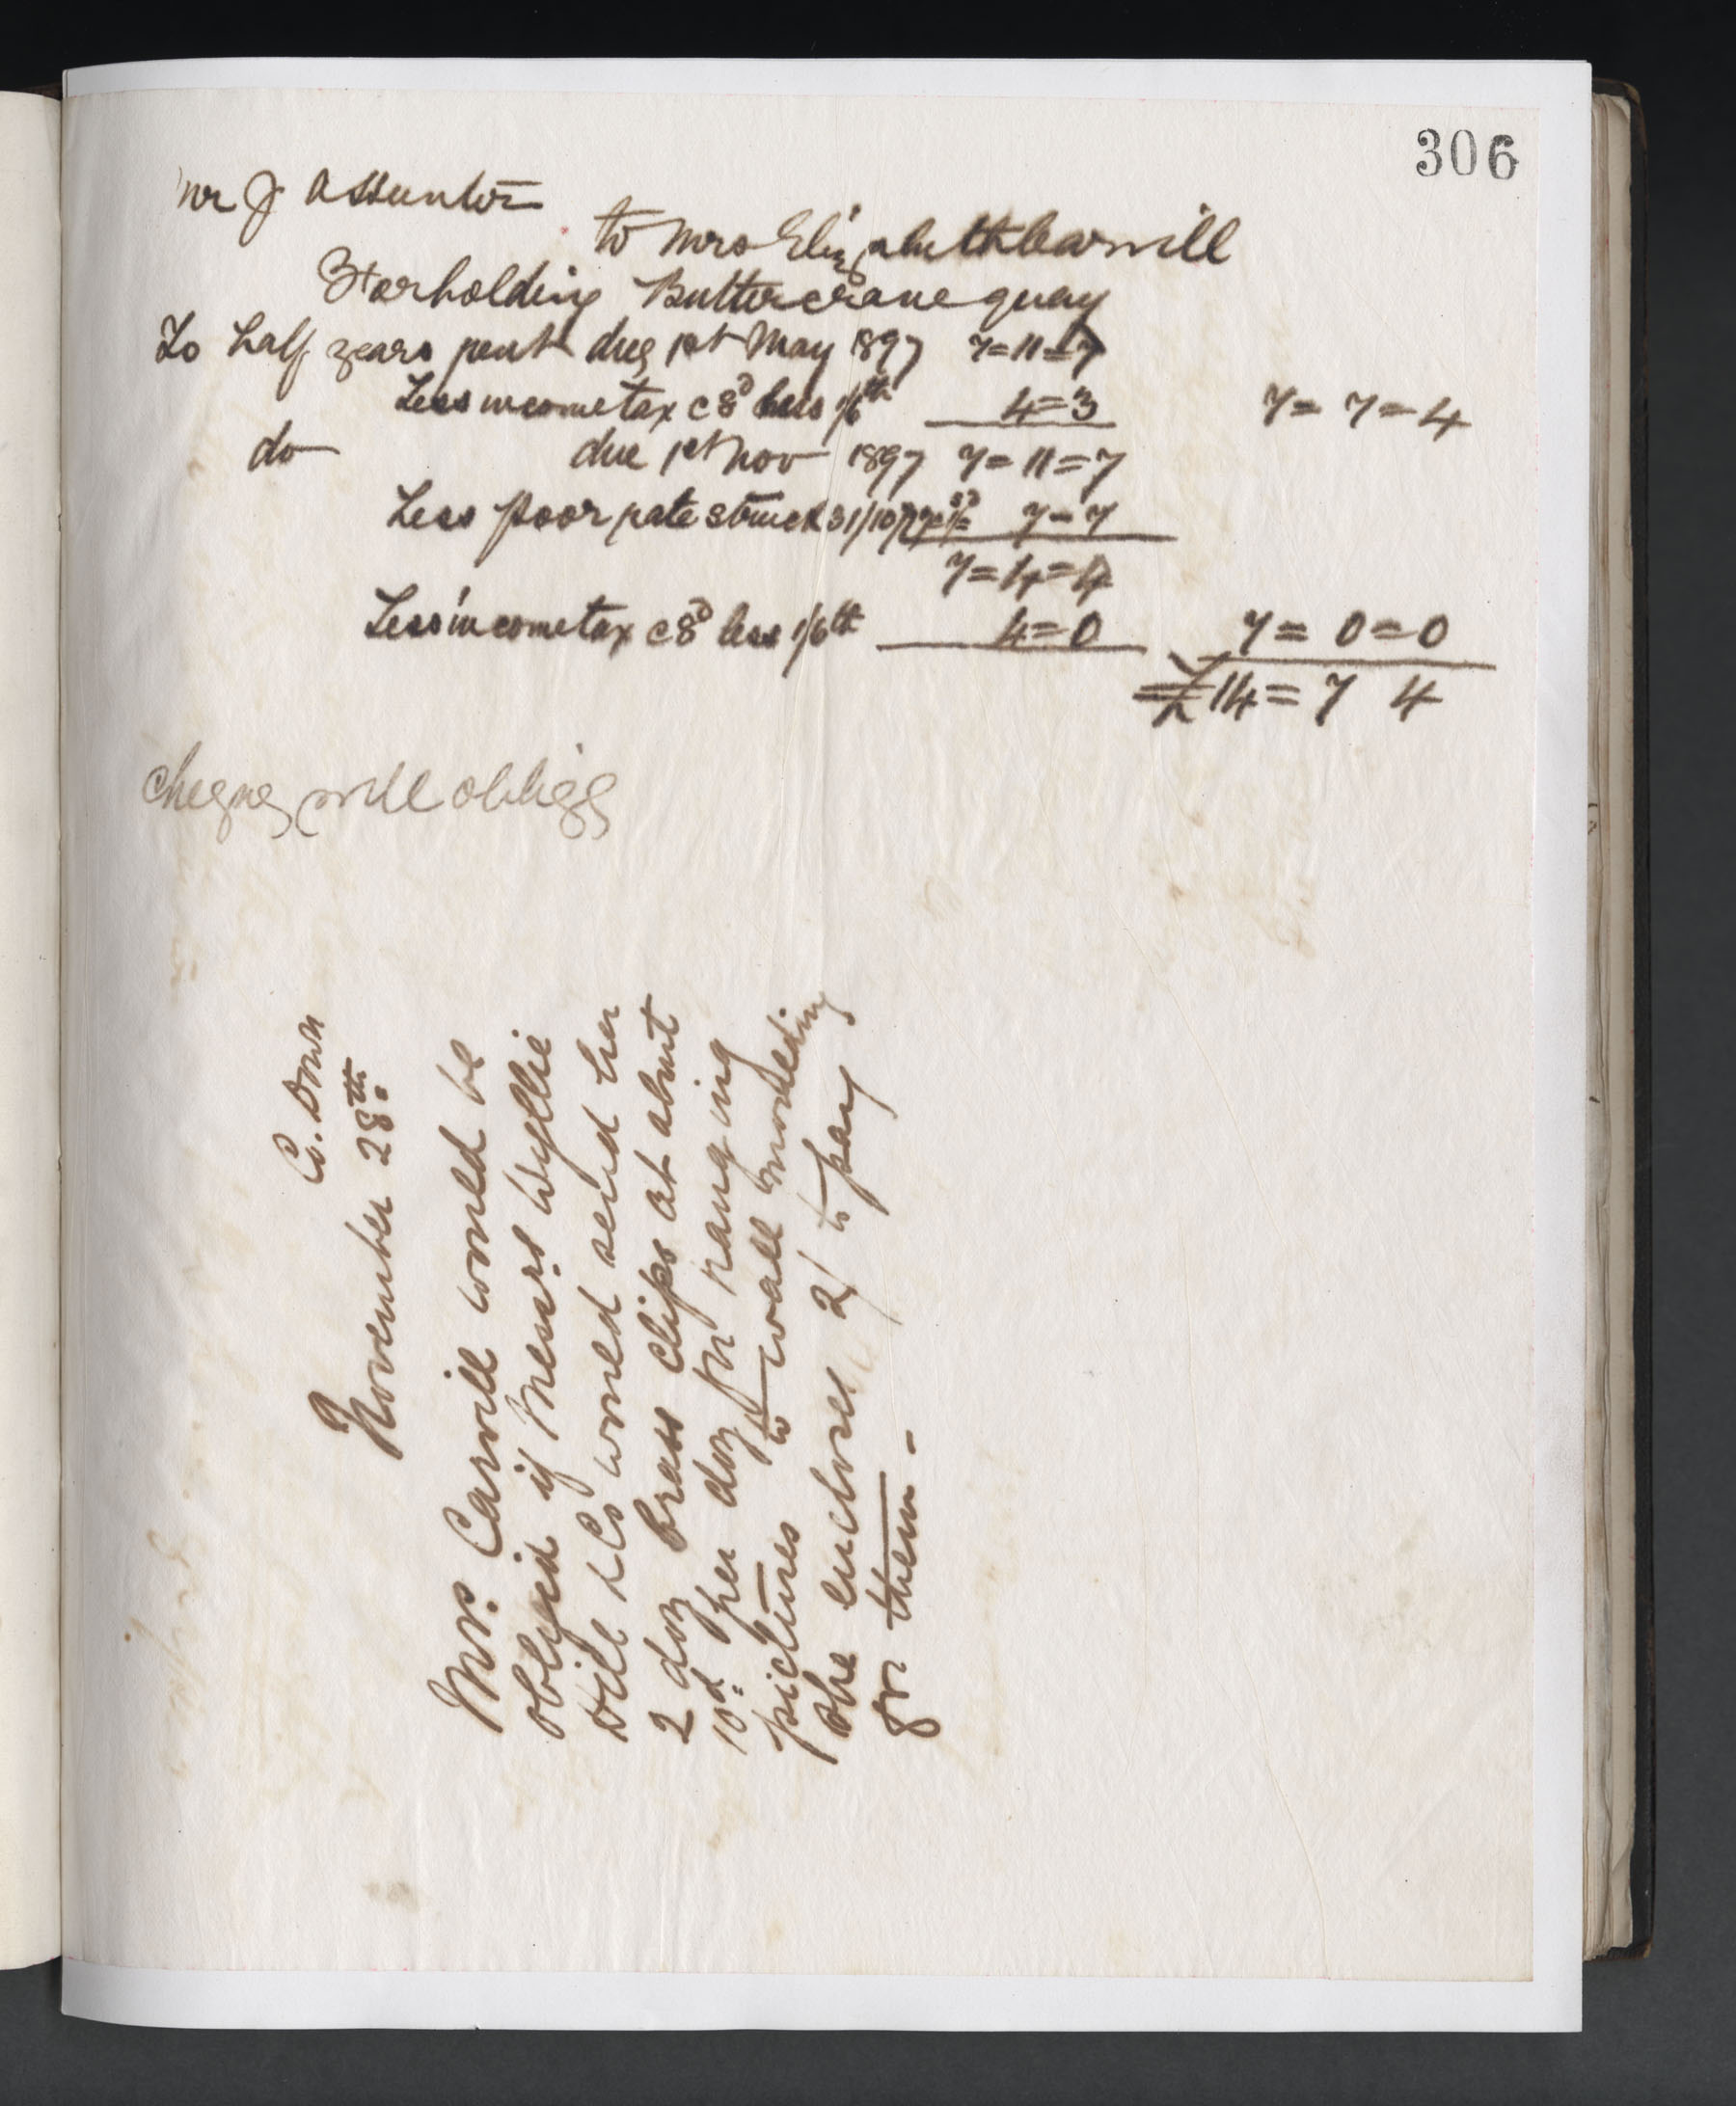 306
Mr J Assunton
to Mrs Elizabeth Carvill
For holding Buttercrane quay
To half years rent due 1st May 1897 7=11=7
Less income tax @ 8d less 1/6th 4=3 7=7=4
do due 1st Nov 1897 7=11=7
Less Poor rate struck 31/10/97 7=7
7=4=4
Less income tax @ 8d less 1/6th 4=0 7=0=0
£14=7 4
cheque will oblige
Co. Down
November 28th.
Mrs. Carvill would be
obliged if Messrs Wyllie
& Co would send her
2 doz brass clips at about
10d per doz for hanging
pictures to wall moulding
she encloses 2/ to pay
for them -